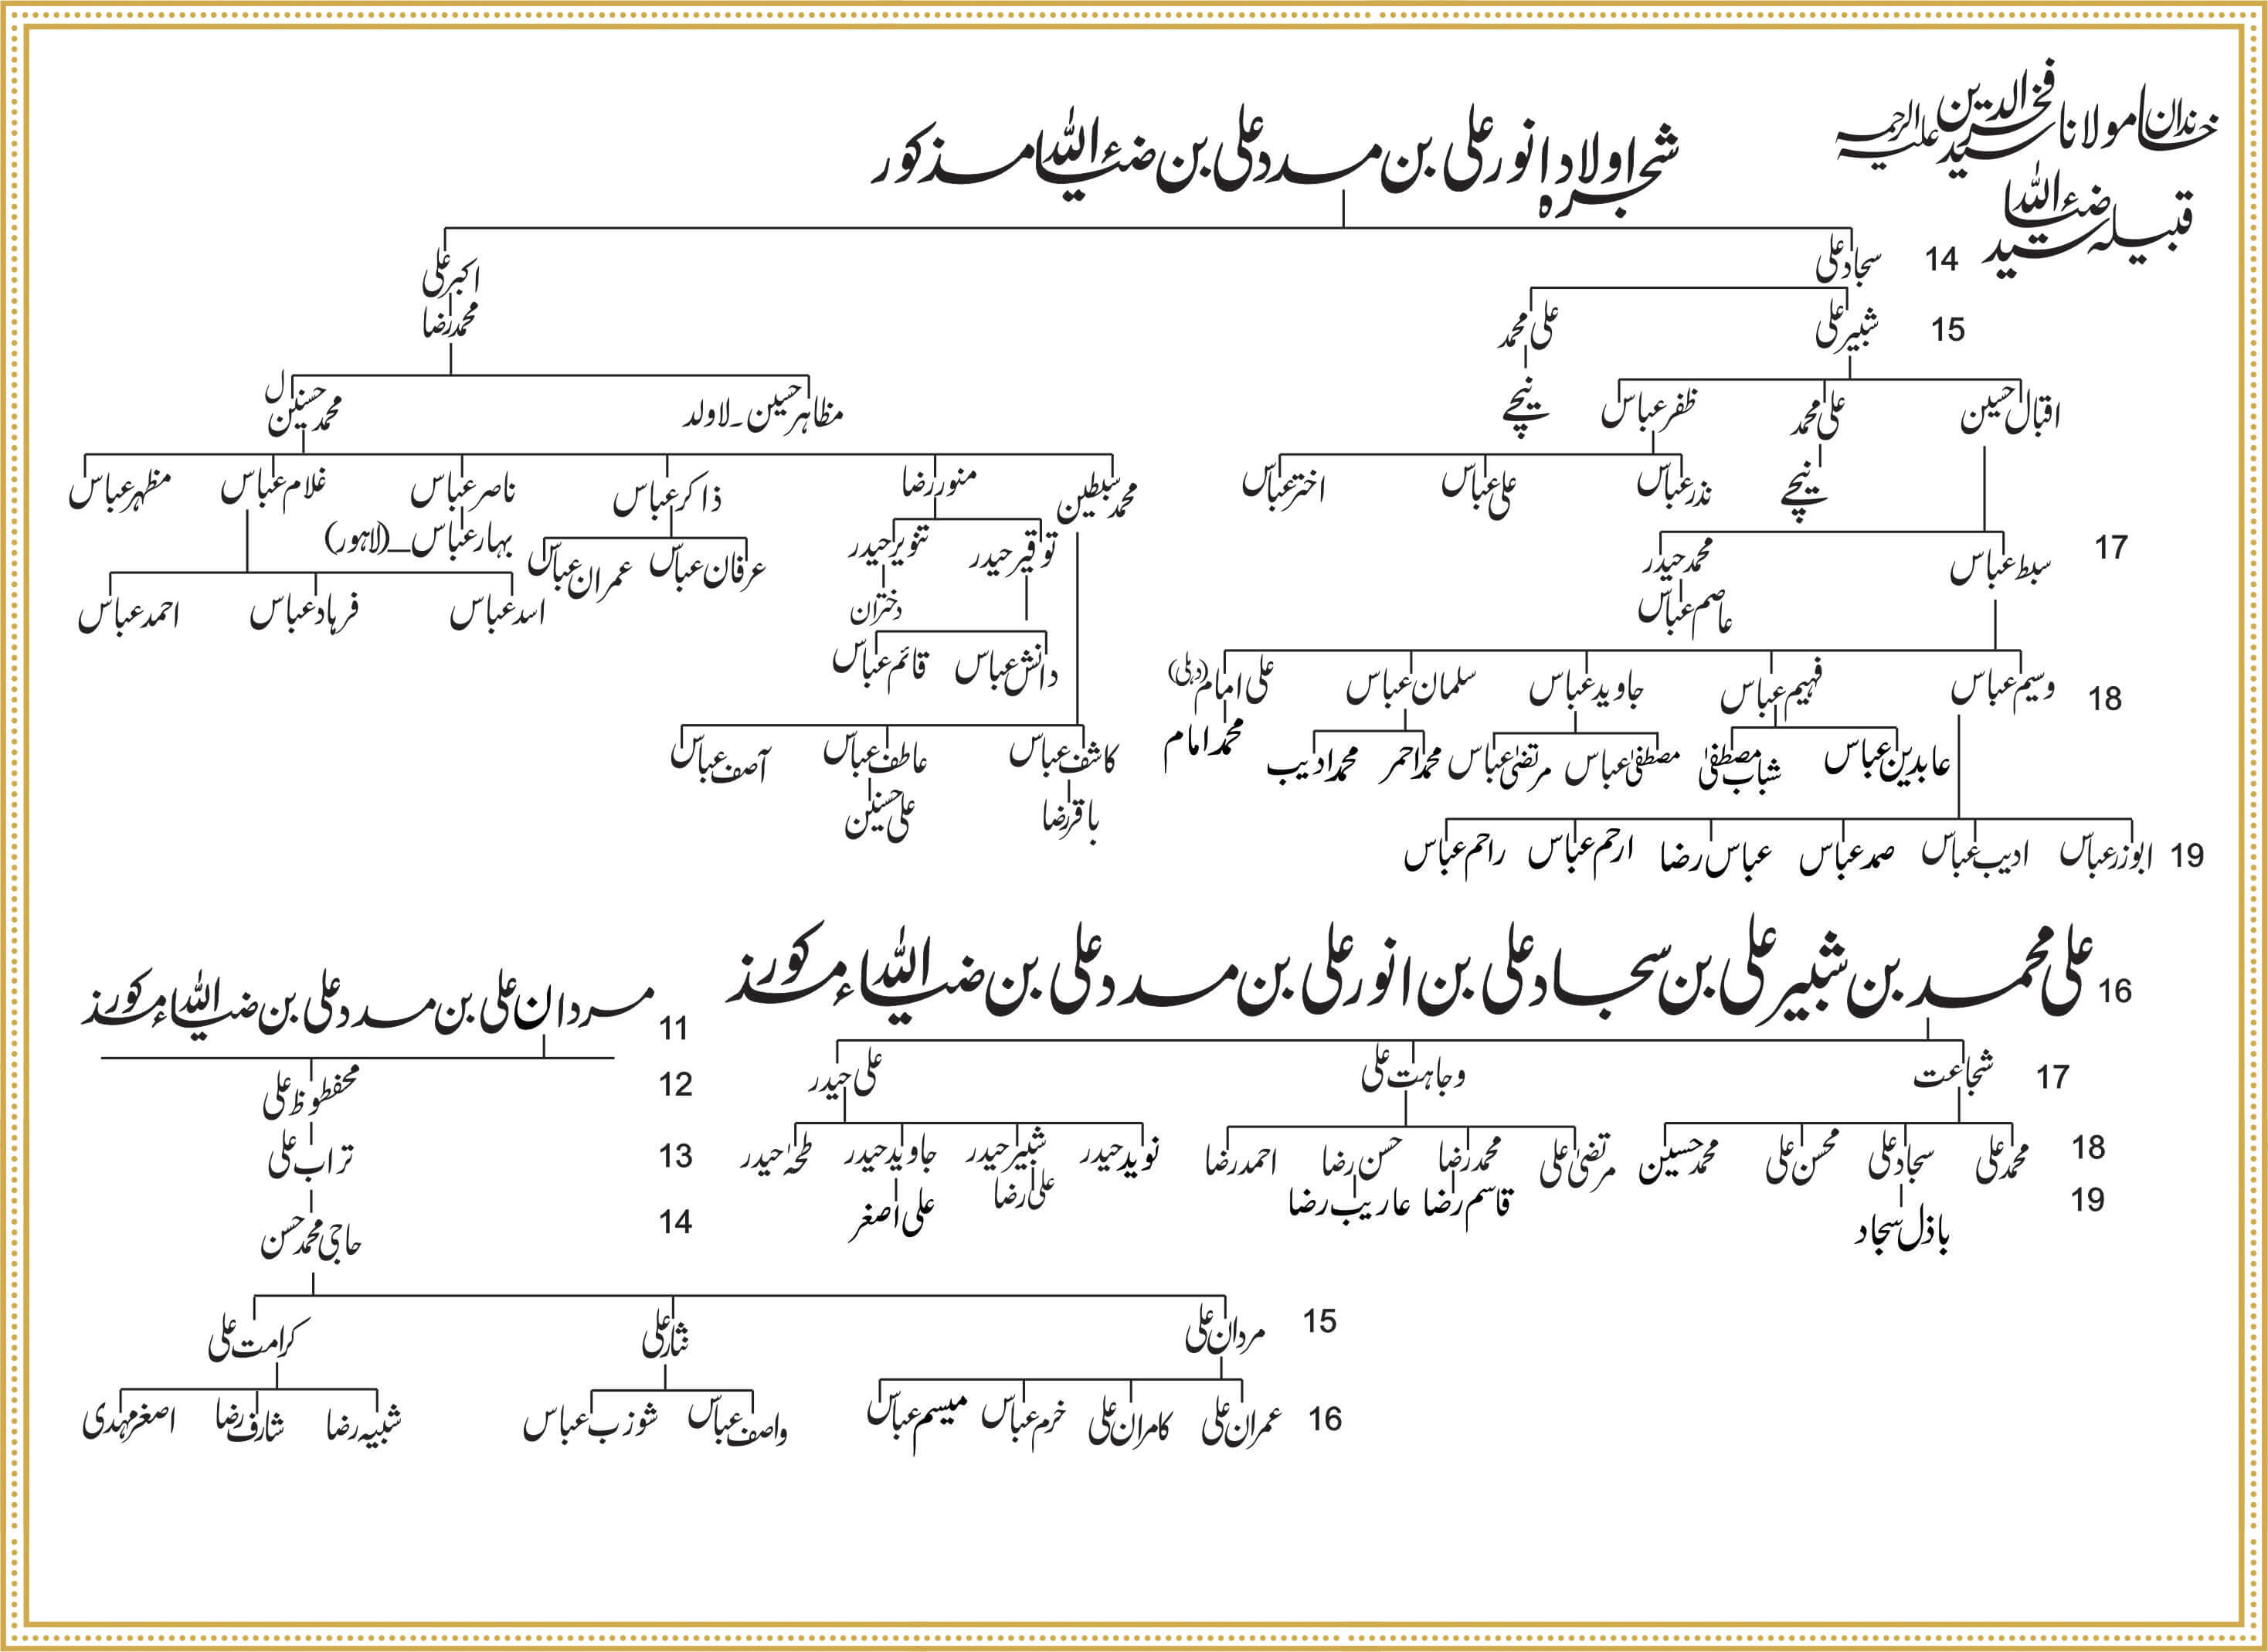 خاندان مولانا سید فخرالدین علیہ الرحمہ
قبیلہ سید ضیاءاللہ
شجرہ اولاد انور علی بن مدد علی بن ضیاءاللہ مذکور
14 سجاد علی اکبر علی
15 شبیر علی علی محمد محمد رضا
اقبال حسین علی محمد ظفر عباس نیچے مظاہر حسین۔لاولد محمد حسنین
نیچے نذر عباس علی عباس اختر عباس محمد سبطین منور رضا ذاکر عباس ناصر عباس غلام عباس مظہر عباس
17 سبط عباس محمد حیدر توقیر حیدر تنویر حیدر عرفان عباس عمران عباس بہار عباس_(لاہور)
عاصم عباس دختران اسد عباس فرہاد عباس احمد عباس
دانش عباس قائم عباس
18 وسیم عباس فہیم عباس جاوید عباس سلمان عباس علی امام (دہلی)
عابدین عباس شباب مصطفیٰ مصطفیٰ عباس مرتضیٰ عباس محمد احمر محمد ادیب محمد امام کاشف عباس عاطف عباس آصف عباس
باقر رضا علی حسنین
19 ابوزر عباس ادیب عباس صمد عباس عباس رضا ارحم عباس راحم عباس
16 علی محمد بن شبیر علی بن سجاد علی بن انور علی بن مدد علی بن ضیاءاللہ مذکور
17 شجاعت وجاہت علی علی حیدر
18 محمد علی سجاد علی محسن علی محمد حسین مرتضیٰ علی محمد رضا حسن رضا احمد رضا نوید حیدر شبیر حیدر جاوید حیدر طحہٰ حیدر
19 باذل سجاد قاسم رضا عاریب رضا علی رضا علی اصغر
11 مردان علی بن مدد علی بن ضیاءاللہ مذکور
12 محفوظ علی
13 تراب علی
14 حاجی محمد حسن
15 مردان علی نثار علی کرامت علی
16 عمران علی کامران علی خرم عباس میسم عباس واصف عباس شوزب عباس شبیہ رضا شارف رضا اصغر مہدی